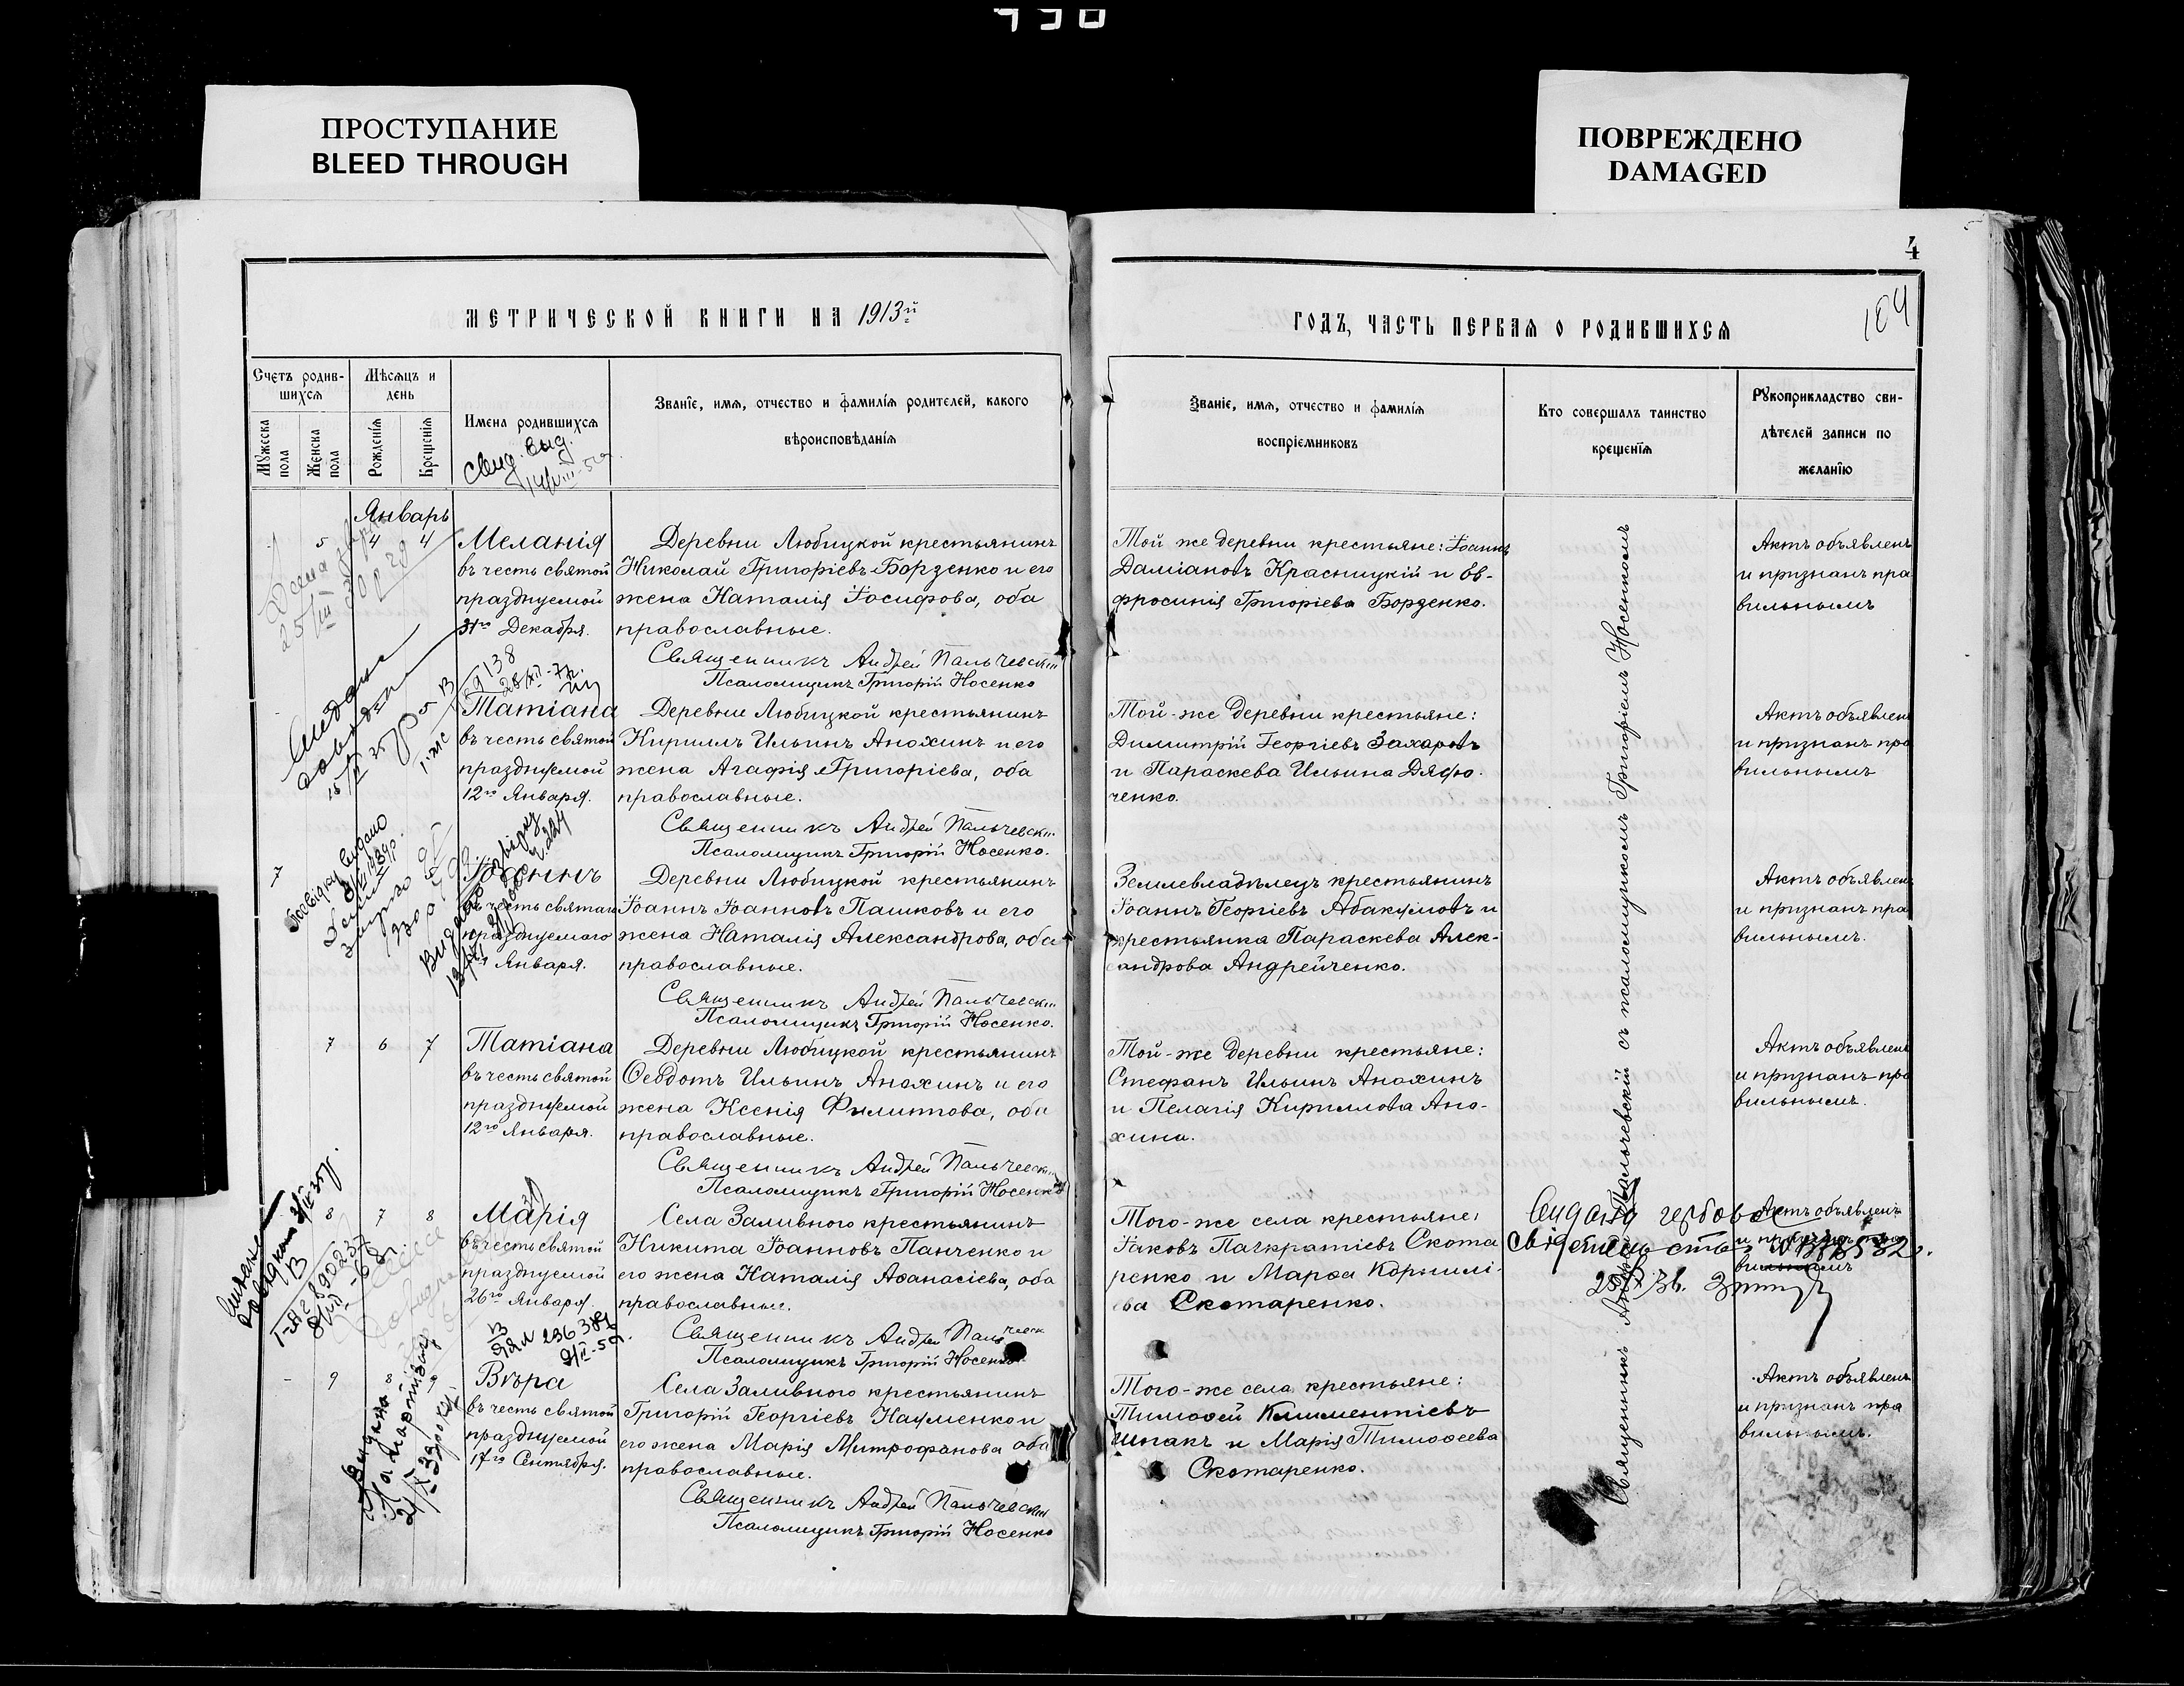 ПРОСТУПАНИЕ
BLEED THROUGH
ПОВРЕЖДЕНО
DAMAGED
4
МЕТРИЧЕСКОЙ КНИГИ НА 1913й
ГОДЪ, ЧАСТЬ ПЕРВАЯ О РОДИВШИХСЯ
Счетъ родив-
шихся
Мѣсяцъ и
день
Мужеска
пола
Женска
пола
Рожденія
Крещенія
Имена родившихся
Званіе, имя, отчество и фамилія родителей, какого
вѣроисповѣданія
Званіе, имя, отчество и фамилія
воспріемниковъ
Кто совершалъ таинство
крещенія
Рукоприкладство сви-
дѣтелей записи по
желанію
Январь
5 4 4 Меланія
въ честь святой
празднуемой
31го Декабря.
Деревни Любицкой крестьянинъ
Николай Григоріевъ Борзенко и его
жена Наталія Іосифова, оба
православные.
Священникъ Андрей Пальчевскій
Псаломщикъ Григорій Носенко
Той же деревни крестьяне: Іоаннъ
Даміановъ Красницкій и Ев-
фросинія Григоріева Борзенко.
Актъ объявленъ
и признанъ пра
вильнымъ
Татіана
въ честь святой
празднуемой
12го Января.
Деревни Любицкой крестьянинъ
Кириллъ Ильинъ Анохинъ и его
жена Агафія Григоріева, оба
православные.
Священникъ Андрей Пальчевскій
Псаломщикъ Григорій Носенко.
Той-же деревни крестьяне:
Димитрій Георгіевъ Захаровъ
и Параскева Ильина Дядю-
ченко.
Актъ объявленъ
и признанъ пра
вильнымъ
7 Іоаннъ
въ честь святаго
празднуемаго
Января.
Деревни Любицкой крестьянинъ
Іоаннъ Іоанновъ Пашковъ и его
жена Наталія Александрова, оба
православные.
Священникъ Андрей Пальчевскій
Псаломщикъ Григорій Носенко.
Землевладѣлецъ крестьянинъ
Іоаннъ Георгіевъ Абакумовъ и
крестьянка Параскева Алек-
сандрова Андрейченко.
Актъ объявленъ
и признанъ пра
вильнымъ.
7 6 7 Татіана
въ честь святой
празднуемой
12го Января.
Деревни Любицкой крестьянинъ
Ѳеодотъ Ильинъ Анохинъ и его
жена Ксенія Филиппова, оба
православные.
Священникъ Андрей Пальчевскій
Псаломщикъ Григорій Носенко
Той-же деревни крестьяне:
Стефанъ Ильинъ Анохинъ
и Пелагія Кириллова Ано-
хина.
Актъ объявленъ
и признанъ пра
вильнымъ.
8 7 8 Марія
въ честь святой
празднуемой
26го Января.
Села Заливного крестьянинъ
Никита Іоанновъ Панченко и
его жена Наталія Аѳанасіева, оба
православные.
Священникъ Андрей Пальческ
Псаломщикъ Григорій Носенко
Того-же села крестьяне:
Іаковъ Панкратіевъ Скота
ренко и Марѳа Корнилі-
ева Скотаренко.
Актъ объявленъ
и признанъ пра
вильнымъ
9 8 9 Вѣра
въ честь святой
празднуемой
17го Сентября.
Села Заливного крестьянинъ
Григорій Георгіевъ Науменко и
его жена Марія Митрофанова оба
православные.
Священникъ Андрей Пальчевскій
Псаломщикъ Григорій Носенко
Того-же села крестьяне:
Тимоѳей Климентіевъ
Шпакъ и Марія Тимоѳеева
Скотаренко.
Актъ объявленъ
и признанъ пра
вильнымъ.
Священникъ Андрей Пальчевскій съ псаломщикомъ Григоріемъ Носенкомъ